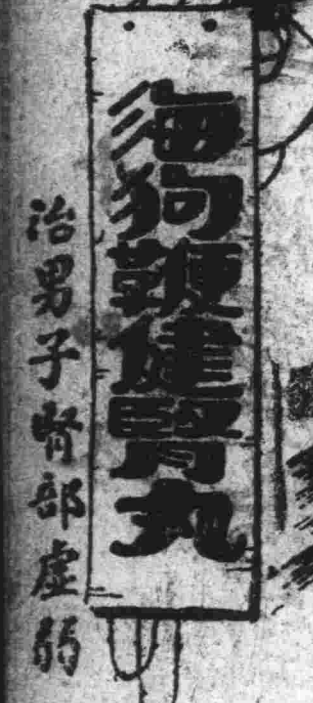 海狗鞭健腎丸
治男子腎部虛弱